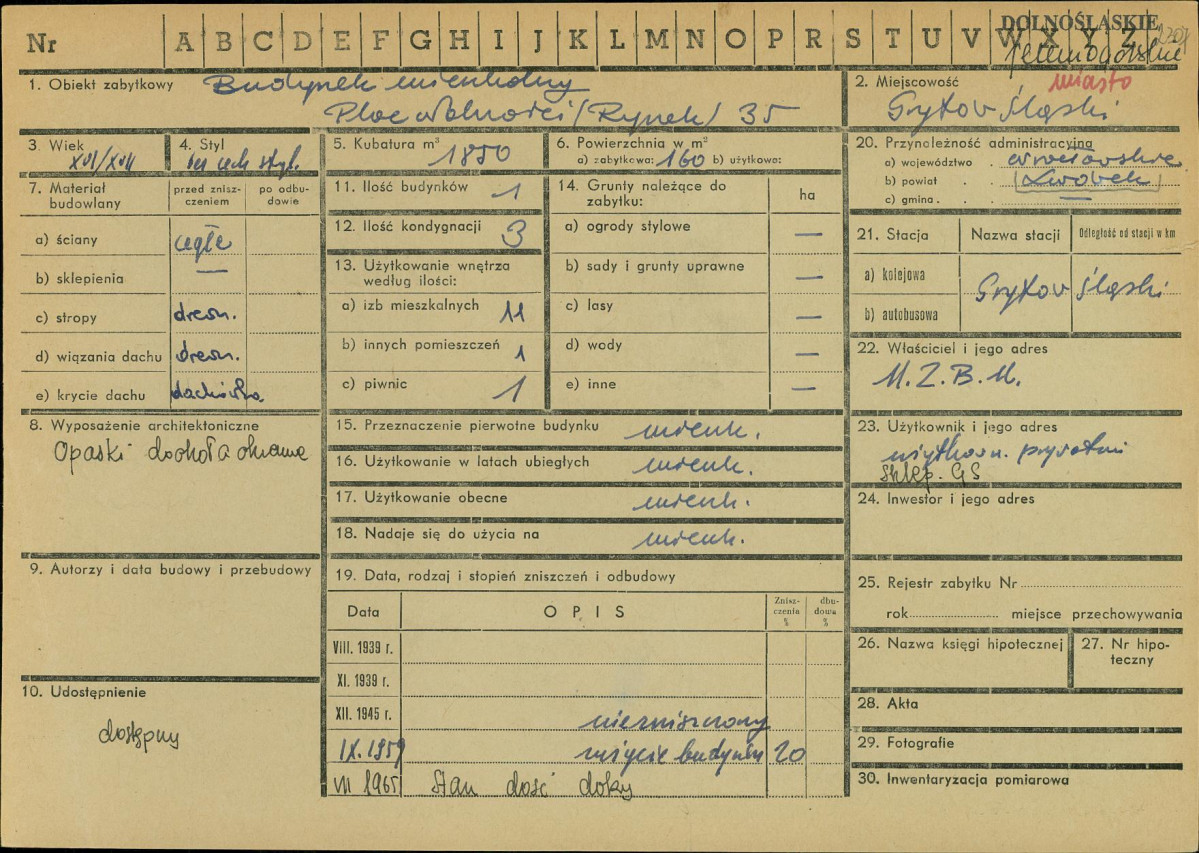 Nr A B C D E F G H I J K L M N O P R S T U V W X Y Z
DOLNOŚLĄSKIE
jeleniogórskie
1. Obiekt zabytkowy Budynek mieszkalny
Plac Wolności (Rynek) 35
2. Miejscowość miasto
Gryfów Śląski
3. Wiek
XVI/XVII
4. Styl
bez cech styl.
5. Kubatura m³ 1850
6. Powierzchnia w m²
a) zabytkowa: 160 b) użytkowa:
7. Materiał budowlany
przed zniszczeniem
po odbudowie
a) ściany cegła
b) sklepienia —
c) stropy drewn.
d) wiązania dachu drewn.
e) krycie dachu dachówka
8. Wyposażenie architektoniczne
Opaski dookoła okienne
9. Autorzy i data budowy i przebudowy
10. Udostępnienie
dostępny
11. Ilość budynków 1
12. Ilość kondygnacji 3
13. Użytkowanie wnętrza
według ilości:
a) izb mieszkalnych 11
b) innych pomieszczeń 1
c) piwnic 1
14. Grunty należące do
zabytku:
ha
a) ogrody stylowe —
b) sady i grunty uprawne —
c) lasy —
d) wody —
e) inne —
15. Przeznaczenie pierwotne budynku mieszk.
16. Użytkowanie w latach ubiegłych mieszk.
17. Użytkowanie obecne mieszk.
18. Nadaje się do użycia na mieszk.
19. Data, rodzaj i stopień zniszczeń i odbudowy
Data OPIS Zniszczenia % dbudowa %
VIII. 1939 r.
XI. 1939 r.
XII. 1945 r. niezniszczony
IX. 1959 zużycie budynku 20
VII 1965 Stan dość dobry
20. Przynależność administracyjna
a) województwo wrocławskie
b) powiat (Lwówek)
c) gmina —
21. Stacja Nazwa stacji Odległość od stacji w km
a) kolejowa
Gryfów Śląski
b) autobusowa
22. Właściciel i jego adres
M.Z.B.M.
23. Użytkownik i jego adres
użytkown. prywatni
sklep. GS
24. Inwestor i jego adres
25. Rejestr zabytku Nr
rok miejsce przechowywania
26. Nazwa księgi hipotecznej
27. Nr hipoteczny
28. Akta
29. Fotografie
30. Inwentaryzacja pomiarowa